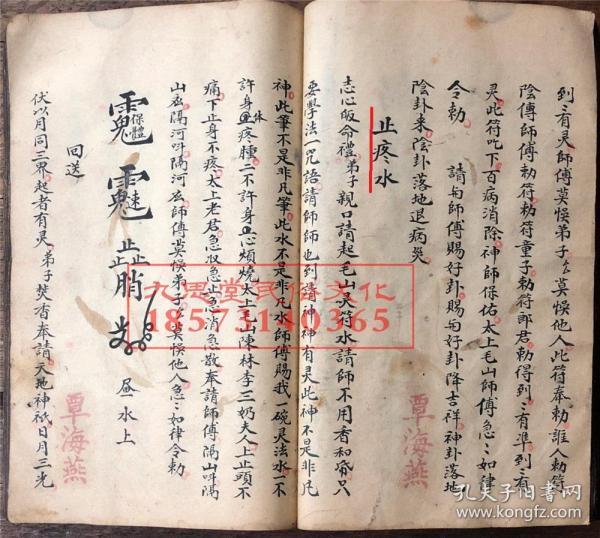 到〻有灵師傅莫悮弟子〻莫悮他人此符奉勅誰人勅符
陰傳師傅勅符勅符童子勅符郎君勅得到〻有準到〻有
灵此符吃下百病消除神師保佑太上毛山師傅急〻如律
令勅 請旬師傅賜好卦賜旬好卦降吉祥神卦落地
陰卦来陰卦落地退病災
止疼水
志心皈命禮弟子親口請起毛山灵符水請師不用香和帋只
要學法一咒語請師師也到請神神有灵此神不是非凡
神此筆不是非凡筆此水不是非凡水師傅賜我一碗灵法水一不
許身休疼腫二不許身心煩燒太上毛陳林李三奶夫人上止頭不
痛下止身不疼太上老君急收急止急消急散奉請師傅隔山呌隔
山应隔河呌隔河应師傅莫悮弟子〻莫悮他人急〻如律令勅
保體
魅
昼水上
回送
伏以月同三界起者有灵弟子焚香奉請天地神祇日月三光
覃海燕
覃海燕
九思堂民俗文化
18573140365
孔夫子旧书网
www.kongfz.com